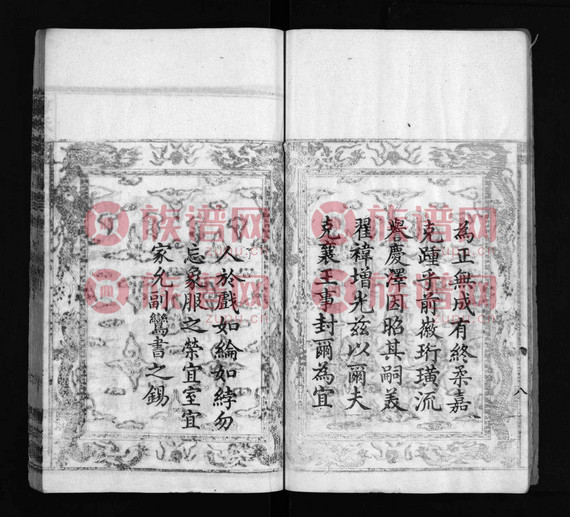 為正無成有終柔嘉
克踵乎前徽珩璜流
譽慶澤因昭其嗣美
翟褘增光茲以爾夫
克襄王事封爾為宜
人於戲如綸如綍勿
忘象服之榮宜室宜
家允副鸞書之錫
八
族谱网
族谱网
族谱网
族谱网